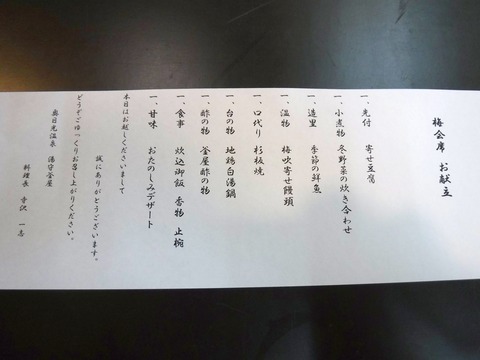 梅会席 お献立
一、先付 寄せ豆腐
一、小煮物 冬野菜の炊き合わせ
一、造里 季節の鮮魚
一、温物 梅吹寄せ饅頭
一、口代り 杉板焼
一、台の物 地鶏白湯鍋
一、酢の物 釜屋酢の物
一、食事 炊込御飯 香物 止椀
一、甘味 おたのしみデザート
本日はお越しくださいまして
誠にありがとうございます。
どうぞごゆっくりお召し上がりください。
奥日光温泉 湯守釜屋
料理長 寺沢 一志